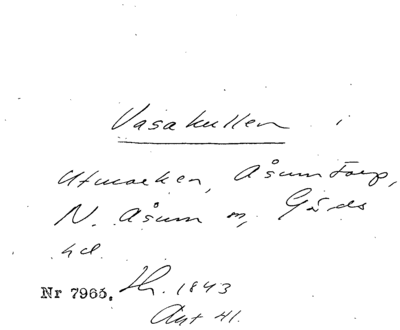 Vasakullen i
Utmarken, Åsumtorp,
N. Åsum sn, Gärds
hd.
Nr 7965. Hr. 1843
Ant 41.